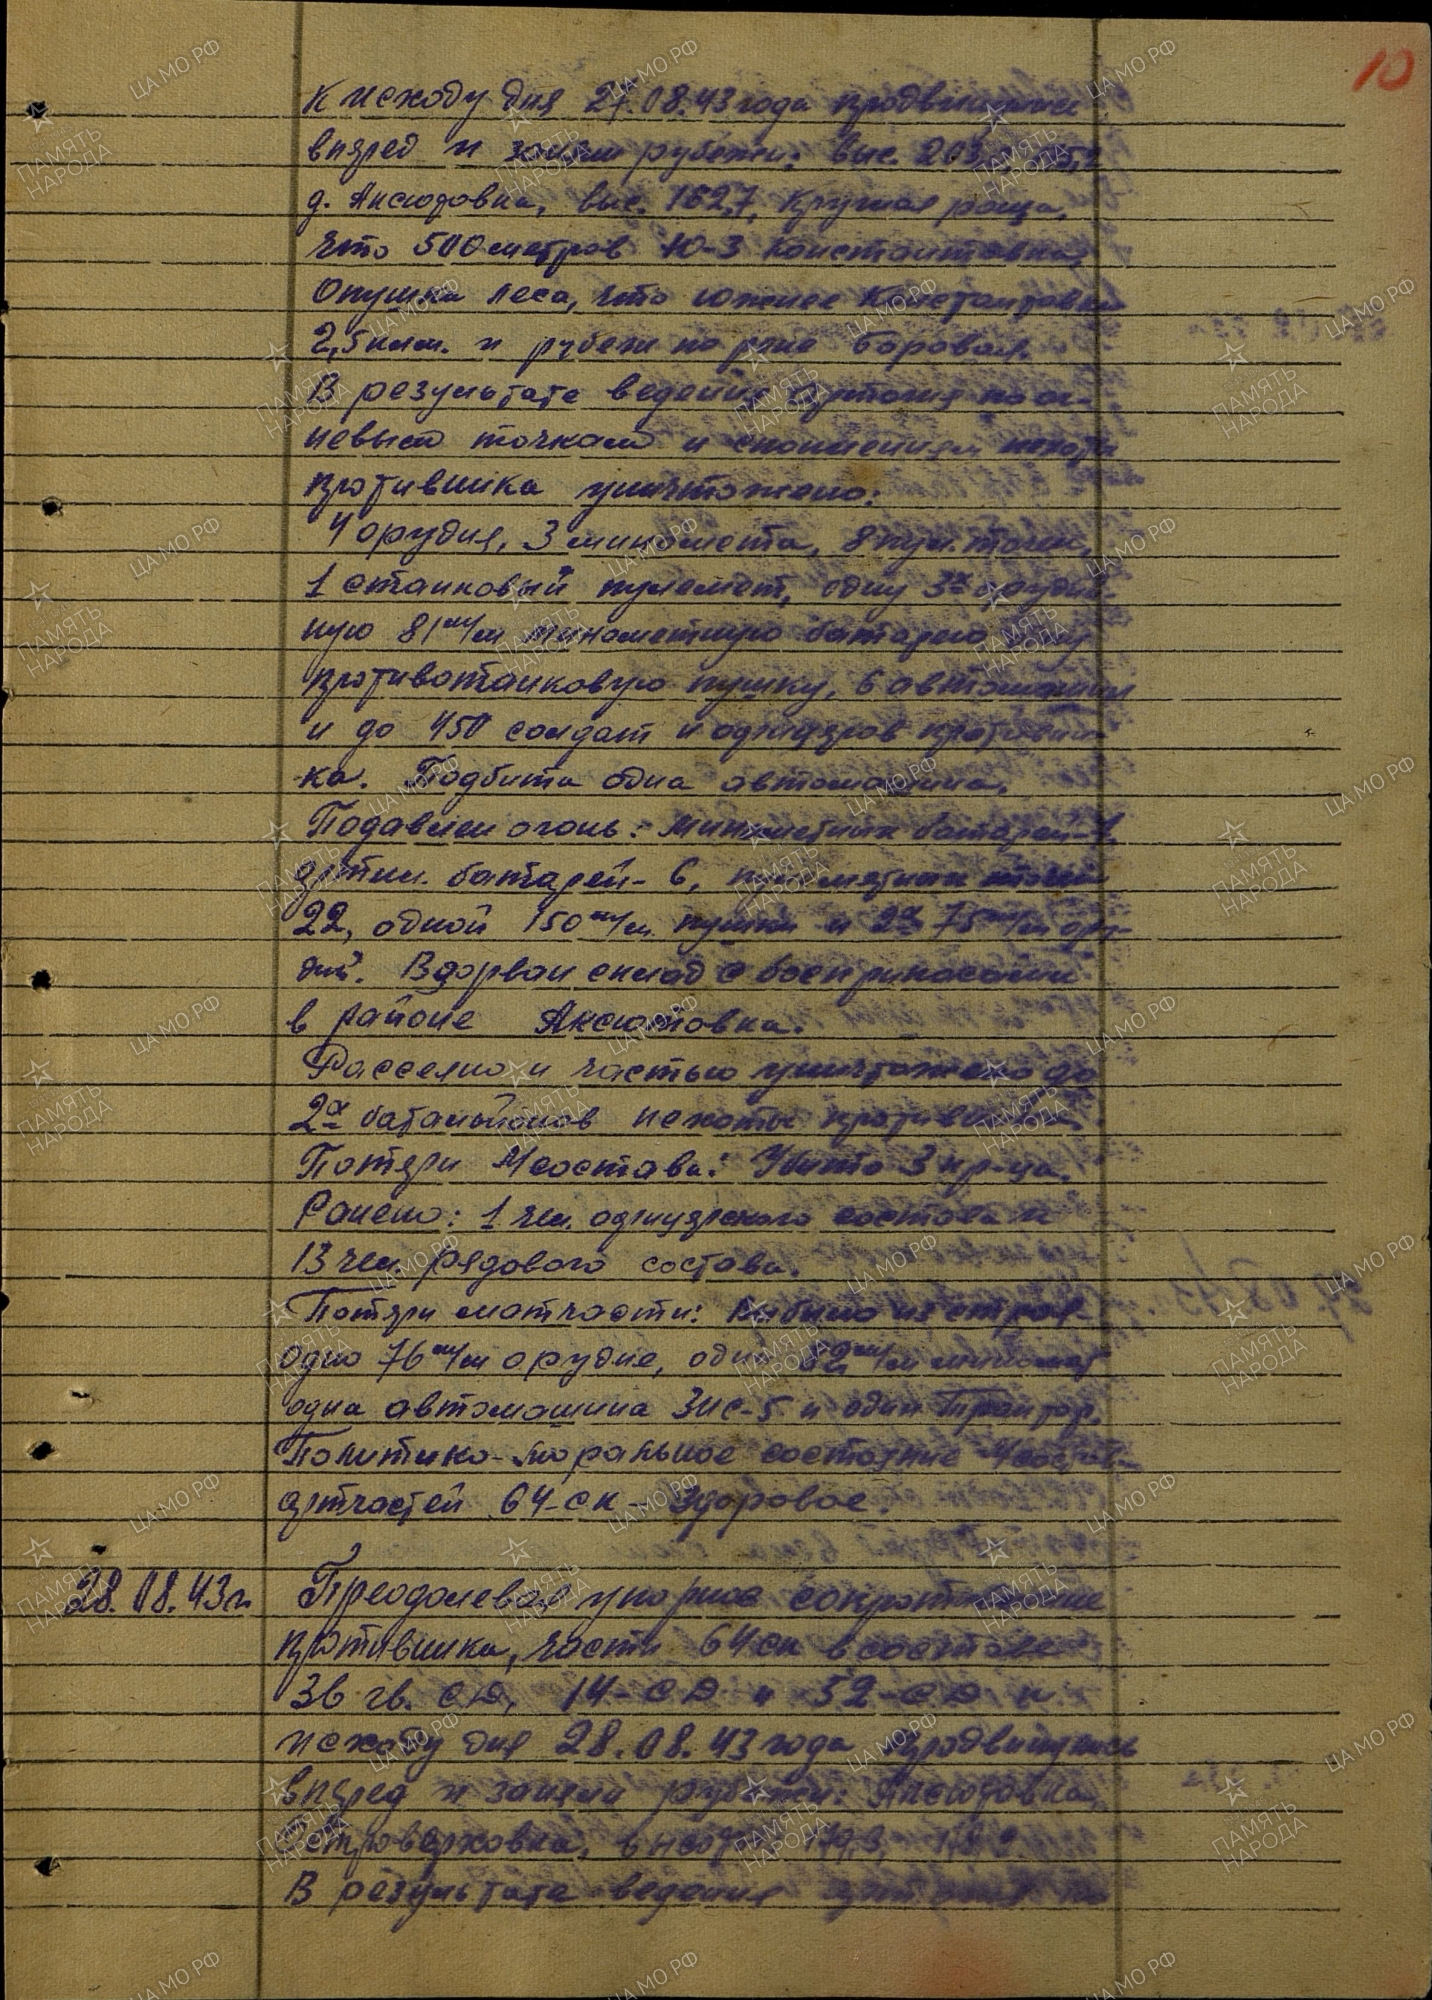 10
К исходу дня 27.08.43 года продвинулись
вперед и заняли рубежи: выс. 203,
д. Аксютовка, выс. 162,7, Круглая роща,
что 500 метров Ю-З Константовка,
Опушка леса, что южнее Константовка
2,5 клм. и рубеж по реке Боровая.
В результате ведения артогня по ог-
невым точкам и скоплениям пехоты
противника уничтожено:
4 орудия, 3 миномета, 8 пул. точек,
1 станковый пулемет, одну 3х орудий-
ную 81 м/м минометную батарею, одну
противотанковую пушку, 6 автомашин
и до 450 солдат и офицеров противни-
ка. Подбита одна автомашина.
Подавлен огонь: минометных батарей-
артил. батарей- 6, пулеметных точек
22, одной 150 м/м пушки и 2х 75 м/м ору-
дий. Взорван склад с боеприпасами
в районе Аксютовка.
Рассеяно и частью уничтожено до
2х батальонов пехоты противника
Потери Л/состава: Убито 3 кр-ца.
Ранено: 1 чел. офицерского состава и
13 чел. рядового состава.
Потери матчасти: Выбыло из строя-
одно 76 м/м орудие, один 82 м/м миномет
одна автомашина ЗИС-5 и один Трактор.
Политико-моральное состояние Л/состава
артчастей 64-ск - Здоровое.
28.08.43 г. Преодолевая упорное сопротивление
противника, части 64 ск в составе
36 гв. СД, 14-СД и 52-СД к
исходу дня 28.08.43 года продвинулись
вперед и заняли рубежи: Аксютовка,
Островерховка, высоты
В результате ведения артогня по
ЦА МО РФ
ПАМЯТЬ НАРОДА